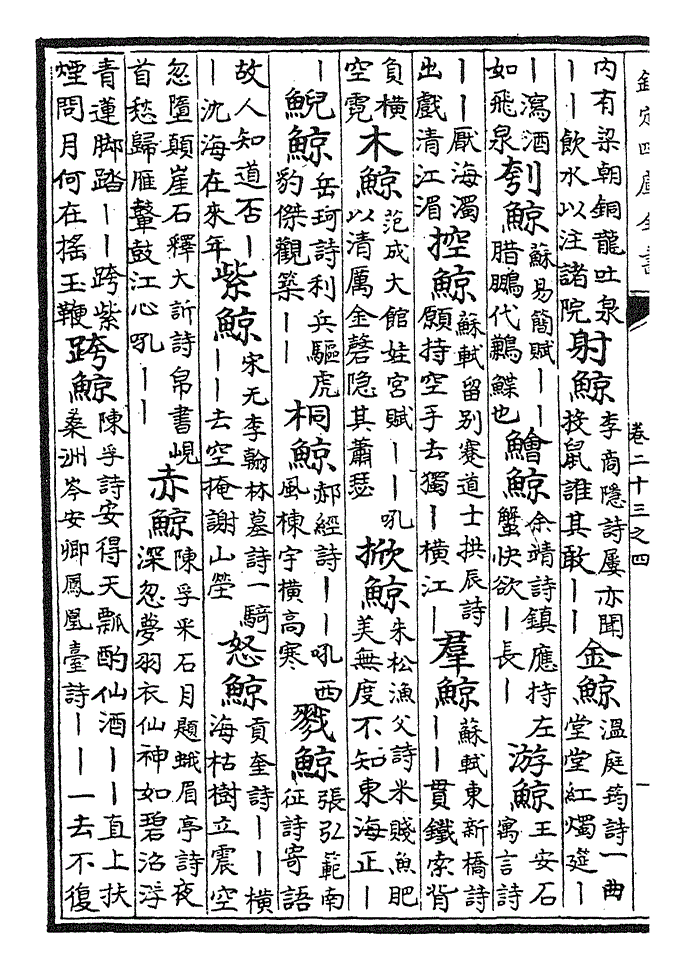 欽定四庫全書
卷二十三之四
内有梁朝銅龍吐泉
丨丨飲水以注諸院
射鯨
李商隱詩屢亦聞
投鼠誰其敢丨丨
金鯨
溫庭筠詩一曲
堂堂紅燭筵丨
丨瀉酒
如飛泉
刳鯨
蘇易簡賦丨丨
腊鵬代鶼鰈也
鱠鯨
余靖詩鎮應持左
蟹快欲丨長丨
游鯨
王安石
寓言詩
丨丨厭海濁
出戲清江湄
控鯨
蘇軾留別蹇道士拱辰詩
願持空手去獨丨横江丨
羣鯨
蘇軾東新橋詩
丨丨貫鐵索背
負横
空霓
木鯨
范成大館娃宫賦丨丨吼
以清厲金磬隐其蕭瑟
掀鯨
朱松漁父詩米賤魚肥
美無度不知東海正丨
丨
鯢鯨
岳珂詩利兵驅虎
豹傑觀築丨丨
桐鯨
郝經詩丨丨吼西
風棟宇横高寒
戮鯨
張弘範南
征詩寄語
故人知道否丨
丨沈海在來年
紫鯨
宋无李翰林墓詩一騎
丨丨去空掩謝山塋
怒鯨
貢奎詩丨丨横
海枯樹立震空
忽墮顛崖石釋大訢詩帛書峴
首愁歸雁鼙鼓江心吼丨丨
赤鯨
陳孚采石月題蛾眉亭詩夜
深忽夢羽衣仙神如碧沼浮
青蓮脚踏丨丨跨紫
煙問月何在摇玉鞭
跨鯨
陳孚詩安得天瓢酌仙酒丨丨直上扶
桑洲岑安卿鳳凰臺詩丨丨一去不復